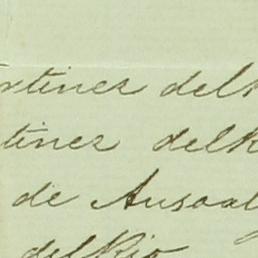 rtinez del R
tinez del R
de Ansoal
del Rio